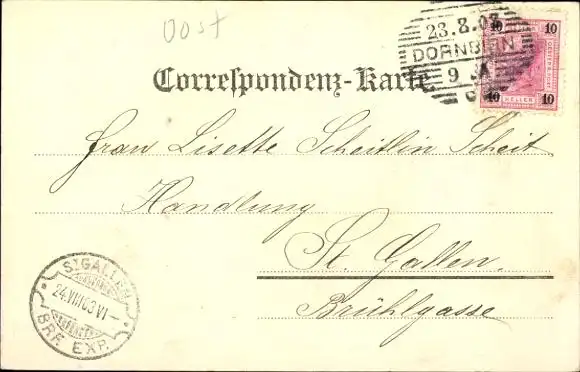 Oost
23.8.03
DORNBIRN
9
10 10
HELLER
10 10
Correspondenz-Karte
Frau Lisette Scheitlin Scheit
Handlung
St. Gallen
Brühlgasse
ST. GALLEN
24.VIII.03.VI
BRF. EXP.